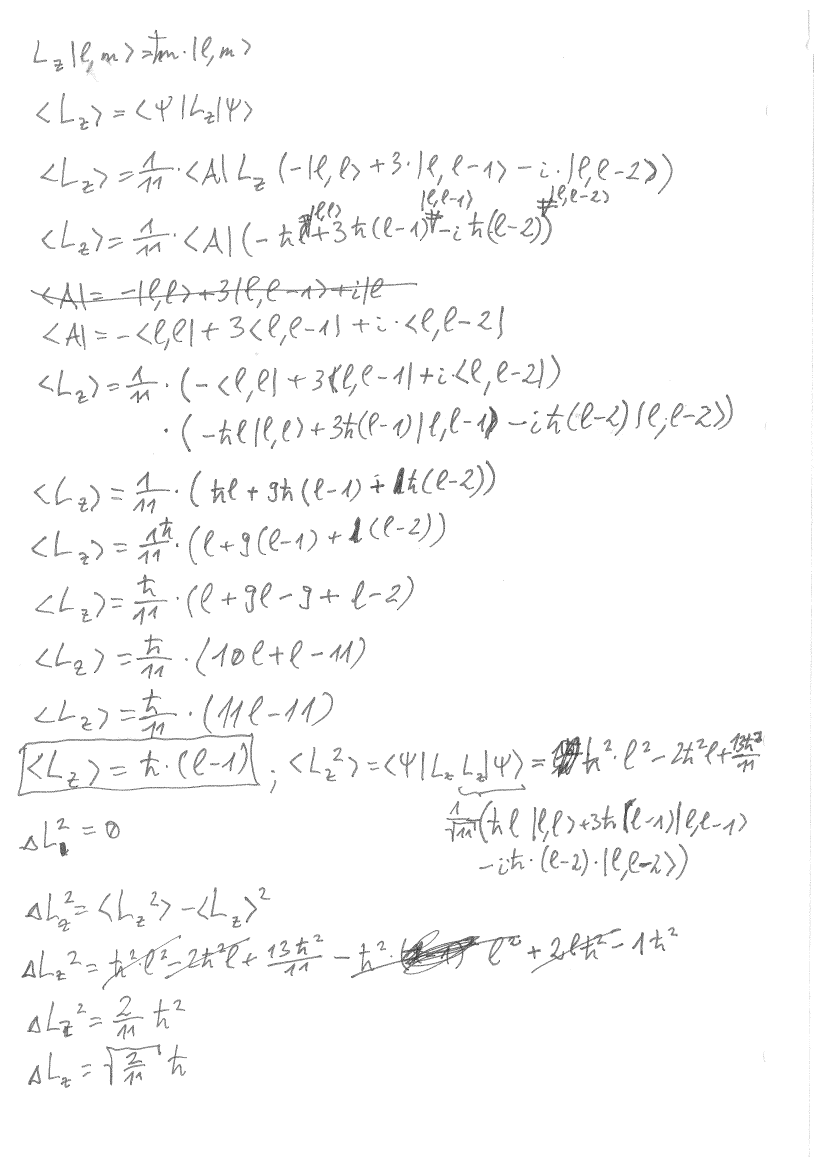 L_z |ℓ,m⟩ = ħm·|ℓ,m⟩
⟨L_z⟩ = ⟨Ψ|L_z|Ψ⟩
⟨L_z⟩ = 1/11 · ⟨A| L_z (-|ℓ,ℓ⟩ + 3·|ℓ,ℓ-1⟩ - i·|ℓ,ℓ-2⟩)
⟨L_z⟩ = 1/11 · ⟨A| (-ħℓ |ℓ,ℓ⟩ + 3ħ(ℓ-1) |ℓ,ℓ-1⟩ - iħ(ℓ-2) |ℓ,ℓ-2⟩)
⟨A| = -|ℓ,ℓ⟩ + 3|ℓ,ℓ-1⟩ + i|ℓ
⟨A| = -⟨ℓ,ℓ| + 3⟨ℓ,ℓ-1| + i·⟨ℓ,ℓ-2|
⟨L_z⟩ = 1/11 · (-⟨ℓ,ℓ| + 3⟨ℓ,ℓ-1| + i·⟨ℓ,ℓ-2|)
· (-ħℓ|ℓ,ℓ⟩ + 3ħ(ℓ-1)|ℓ,ℓ-1⟩ - iħ(ℓ-2)|ℓ,ℓ-2⟩)
⟨L_z⟩ = 1/11 · (ħℓ + 9ħ(ℓ-1) + 1ħ(ℓ-2))
⟨L_z⟩ = 1ħ/11 · (ℓ + 9(ℓ-1) + 1(ℓ-2))
⟨L_z⟩ = ħ/11 · (ℓ + 9ℓ - 9 + ℓ - 2)
⟨L_z⟩ = ħ/11 · (10ℓ + ℓ - 11)
⟨L_z⟩ = ħ/11 · (11ℓ - 11)
⟨L_z⟩ = ħ·(ℓ-1) ; ⟨L_z²⟩ = ⟨Ψ|L_z L_z|Ψ⟩ = ħ²·ℓ² - 2ħ²ℓ + 13ħ²/11
1/√11 (ħℓ |ℓ,ℓ⟩ + 3ħ(ℓ-1)|ℓ,ℓ-1⟩
- iħ·(ℓ-2)·|ℓ,ℓ-2⟩)
ΔL² = 0
ΔL_z² = ⟨L_z²⟩ - ⟨L_z⟩²
ΔL_z² = ħ²ℓ² - 2ħ²ℓ + 13ħ²/11 - ħ²· ℓ² + 2ℓħ² - 1ħ²
ΔL_z² = 2/11 ħ²
ΔL_z = √(2/11) ħ